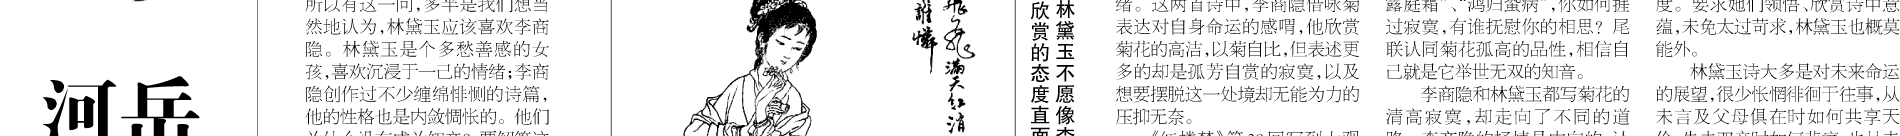 河岳
所以有这一问，多半是我们想当
然地认为，林黛玉应该喜欢李商
隐。林黛玉是个多愁善感的女
孩，喜欢沉浸于一己的情绪；李商
隐创作过不少缠绵悱恻的诗篇，
他的性格也是内敛惆怅的。他们
飞满天红消
谁怜
林黛玉不愿像李
欣赏的态度直面
绪。这两首诗中，李商隐借咏菊
表达对自身命运的感喟，他欣赏
菊花的高洁，以菊自比，但表述更
多的却是孤芳自赏的寂寞，以及
想要摆脱这一处境却无能为力的
压抑无奈。
《红楼梦》第38回写到大观
露庭霜”、“鸿归蛩病”，你如何捱
过寂寞，有谁抚慰你的相思？尾
联认同菊花孤高的品性，相信自
己就是它举世无双的知音。
李商隐和林黛玉都写菊花的
清高寂寞，却走向了不同的道
度。要求她们领悟、欣赏诗中意
蕴，未免太过苛求，林黛玉也概莫
能外。
林黛玉诗大多是对未来命运
的展望，很少怅惘徘徊于往事，从
未言及父母俱在时如何共享天